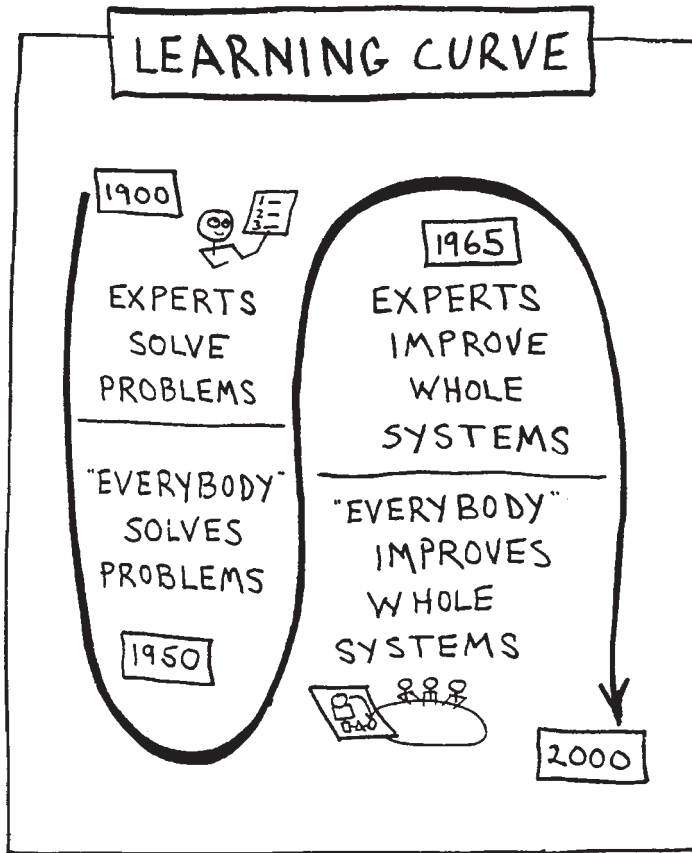 LEARNING CURVE
1900
1—
2—
3—
EXPERTS
SOLVE
PROBLEMS
"EVERYBODY"
SOLVES
PROBLEMS
1950
1965
EXPERTS
IMPROVE
WHOLE
SYSTEMS
"EVERYBODY"
IMPROVES
WHOLE
SYSTEMS
2000